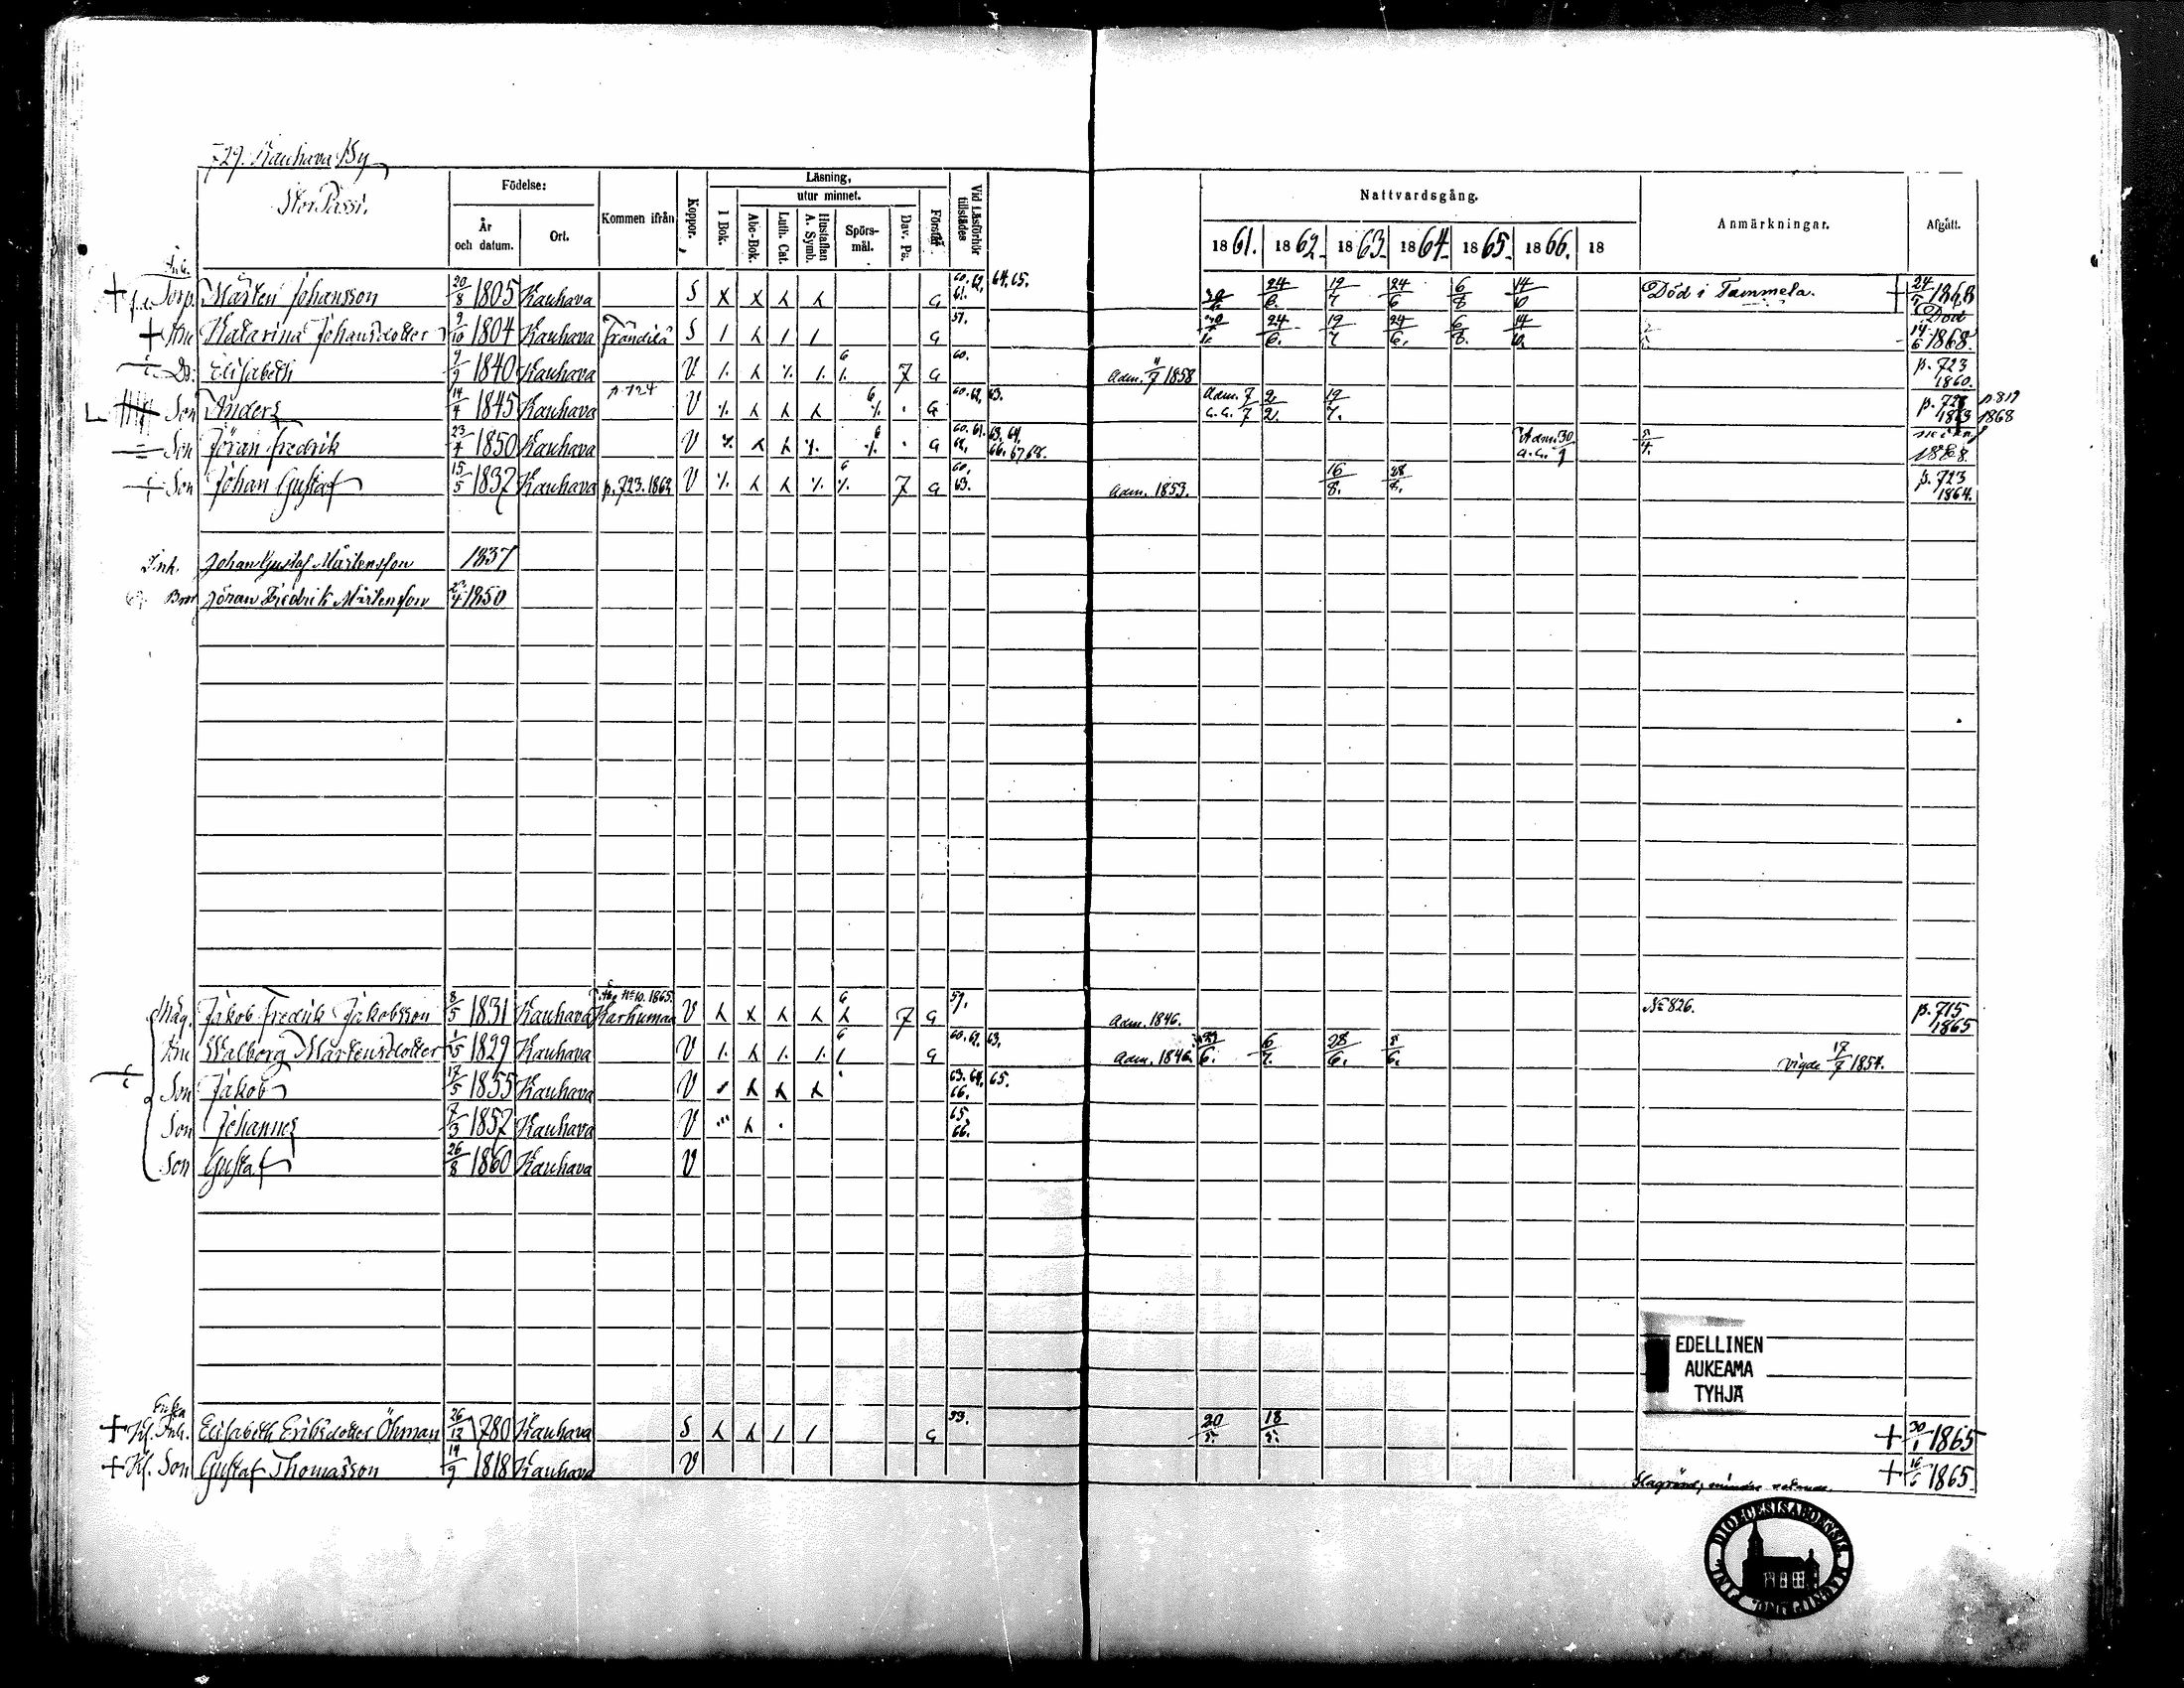 729. Kauhava By
Stor Passi.
Födelse: Läsning,
utur minnet.
År och datum. Ort. Kommen ifrån Koppor. I Bok. Abc-Bok. Luth. Cat. Hustaflan A. Symb. Spörsmål. Dav. Ps. Förstår Vid Läsförhör tillstädes
Nattvardsgång. Anmärkningar. Afgått.
1861. 1862. 1863. 1864. 1865. 1866. 18
Inh.
+ f.d. Torp. Mårten Johansson 20/8 1805 Kauhava S X X λ λ G 60. 62. 64. 65. 61. 24/6. 19/7 24/6 6/8 14/10 Död i Tammela. + 24/5 1868
+ Hu Katarina Johansdotter 9/10 1804 Kauhava Frändilä S 1 λ 1 1 G 57. 24/6. 19/7 24/6. 6/8. 14/10. Död 14/6 1868.
Dr. Elisabeth 9/9 1840 Kauhava V 1. λ ٪. 1. 1. 6 7 G 60. Adm. 11/7 1858 p. 723 1860.
Son Anders 14/4 1845 Kauhava p. 724 V ٪. λ λ λ 6 ٪. G 60. 62. 63. Adm. 7/7 2/2. 19/7. p. 723 1863 p 819 1868
Son Jöran Fredrik 23/4 1850 Kauhava V ٪. λ λ ٪. 6 ٪. G 60. 61. 63. 64. 66. 67 68. Adm. 30/9 5/4. 1868.
Son Johan Gustaf 15/5 1837 Kauhava p. 723. 1862 V ٪. λ λ ٪. ٪. 6 7 G 60. 63. Adm. 1853. 16/8. 28/8. p. 723 1864.
Inh. Johan Gustaf Mårtensson 1837
Bror Jöran Fredrik Mårtensson 1850
Måg. Jakob Fredrik Jakobsson 8/5 1831 Kauhava No 10. 1865. Karhumaa V λ x λ λ λ 6 7 G 59. Adm. 1846. No 826. p. 715 1865
Hu Walborg Mårtensdotter 1/5 1829 Kauhava V 1. λ 1. 1. 1 6 G 60. 62. 63. Adm. 1846. 6/7. 28/6. 8/6. vigde 17/7 1854.
Son Jakob 17/5 1855 Kauhava V λ λ λ 63. 64. 65. 66.
Son Johannes 7/3 1857 Kauhava V λ 65. 66.
Son Gustaf 26/8 1860 Kauhava V
EDELLINEN
AUKEAMA
TYHJÄ
Enka
+ Hf. Inh. Elisabeth Eriksdotter Öhman 26/12 1780 Kauhava S λ λ 1 1 G 59. 20/5. 18/5. + 30/1 1865
+ Hf. Son Gustaf Thomasson 19/9 1818 Kauhava V Slagrörd, mindre vetande. + 16/6 1865.
DIOECESIS ABOENSIS